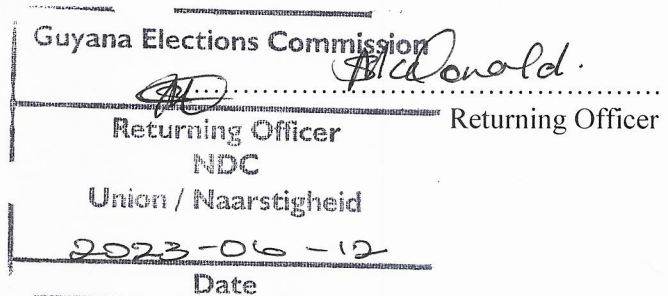 Guyana Elections Commission
McDonald.
Returning Officer
Returning Officer
NDC
Union / Naarstigheid
2023-06-12
Date